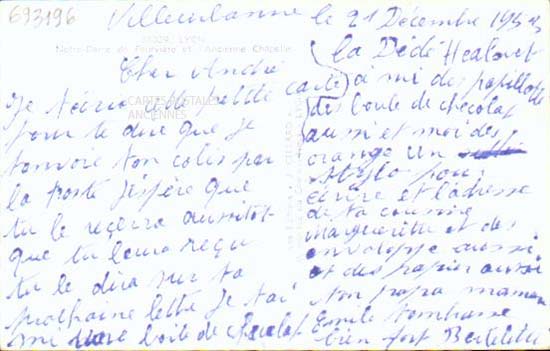 693196
Villeurbanne le 21 Décembre 195
LYON
Notre-Dame de Fourvière et l'Ancienne Chapelle
CARTES POSTALES
ANCIENNES
Cher André
Je técris cette petite carte
pour te dire que je
tenvoie ton colis par
la poste Jéspère que
tu le reçerra aussitot
que tu loura reçu
tu le dira sur ta
prochaine lettre je tai
mi une boite de chocolat
la Dédé
a mi des papillotte
des boule de checolat
aussi et moi des
orange un
stylo pour
écrire et ladresse
de ta cousine
Marguerite et des
enveloppe aussi
et des papier aussi
ton papa maman
Emile tembrasse
bien fort